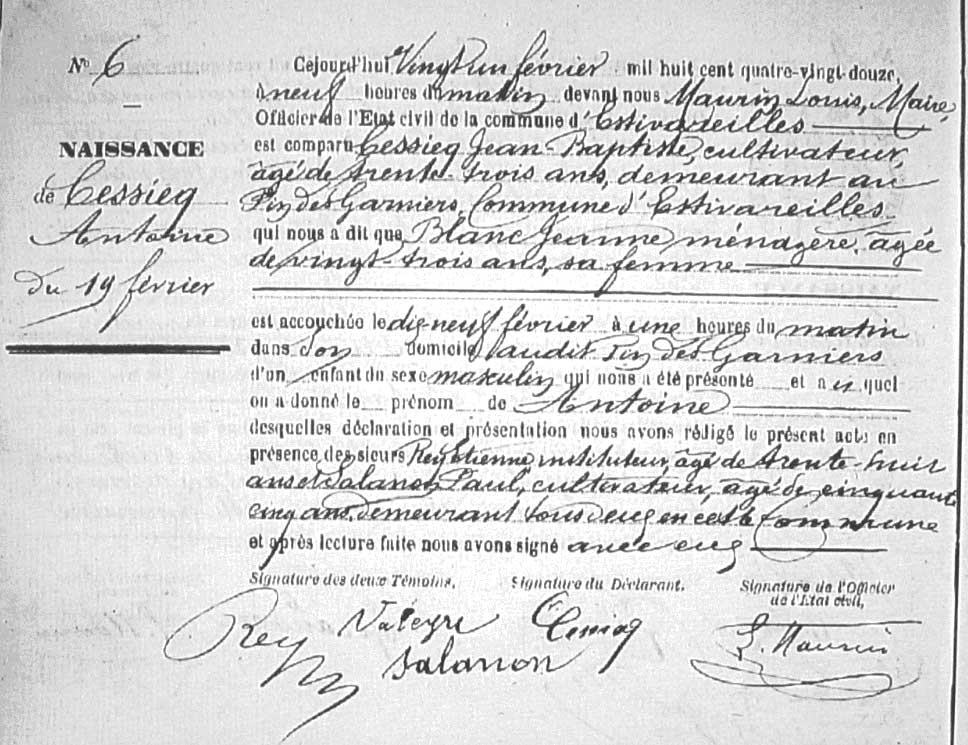 N° 6
NAISSANCE
de Cessieq
Antoine
du 19 février
Cejourd'hui Vingt un février mil huit cent quatre-vingt douze,
à neuf heures du matin devant nous Maurin Louis, Maire,
Officier de l'Etat civil de la commune d'Estivareilles
est comparu Cessieq Jean-Baptiste, cultivateur,
âgé de trente-trois ans, demeurant au
Pin des Garniers, Commune d'Estivareilles
qui nous a dit que Blanc Jeanne ménagère, âgée
de vingt-trois ans, sa femme
est accouchée le dix-neuf février à une heures du matin
dans son domicile, audit Pin des Garniers
d'un enfant du sexe masculin qui nous a été présenté et auquel
on a donné le prénom de Antoine
desquelles déclaration et présentation nous avons rédigé le présent acte en
présence des sieurs Rey Etienne, instituteur, âgé de trente-huit
ans et Salanon Paul, cultivateur, âgé de cinquante
cinq ans, demeurant tous deux en cette Commune
et après lecture faite nous avons signé avec eux
Signature des deux Témoins. Signature du Déclarant. Signature de l'Officier
de l'Etat civil,
Rey Valeyre L. Maurin
Salanon